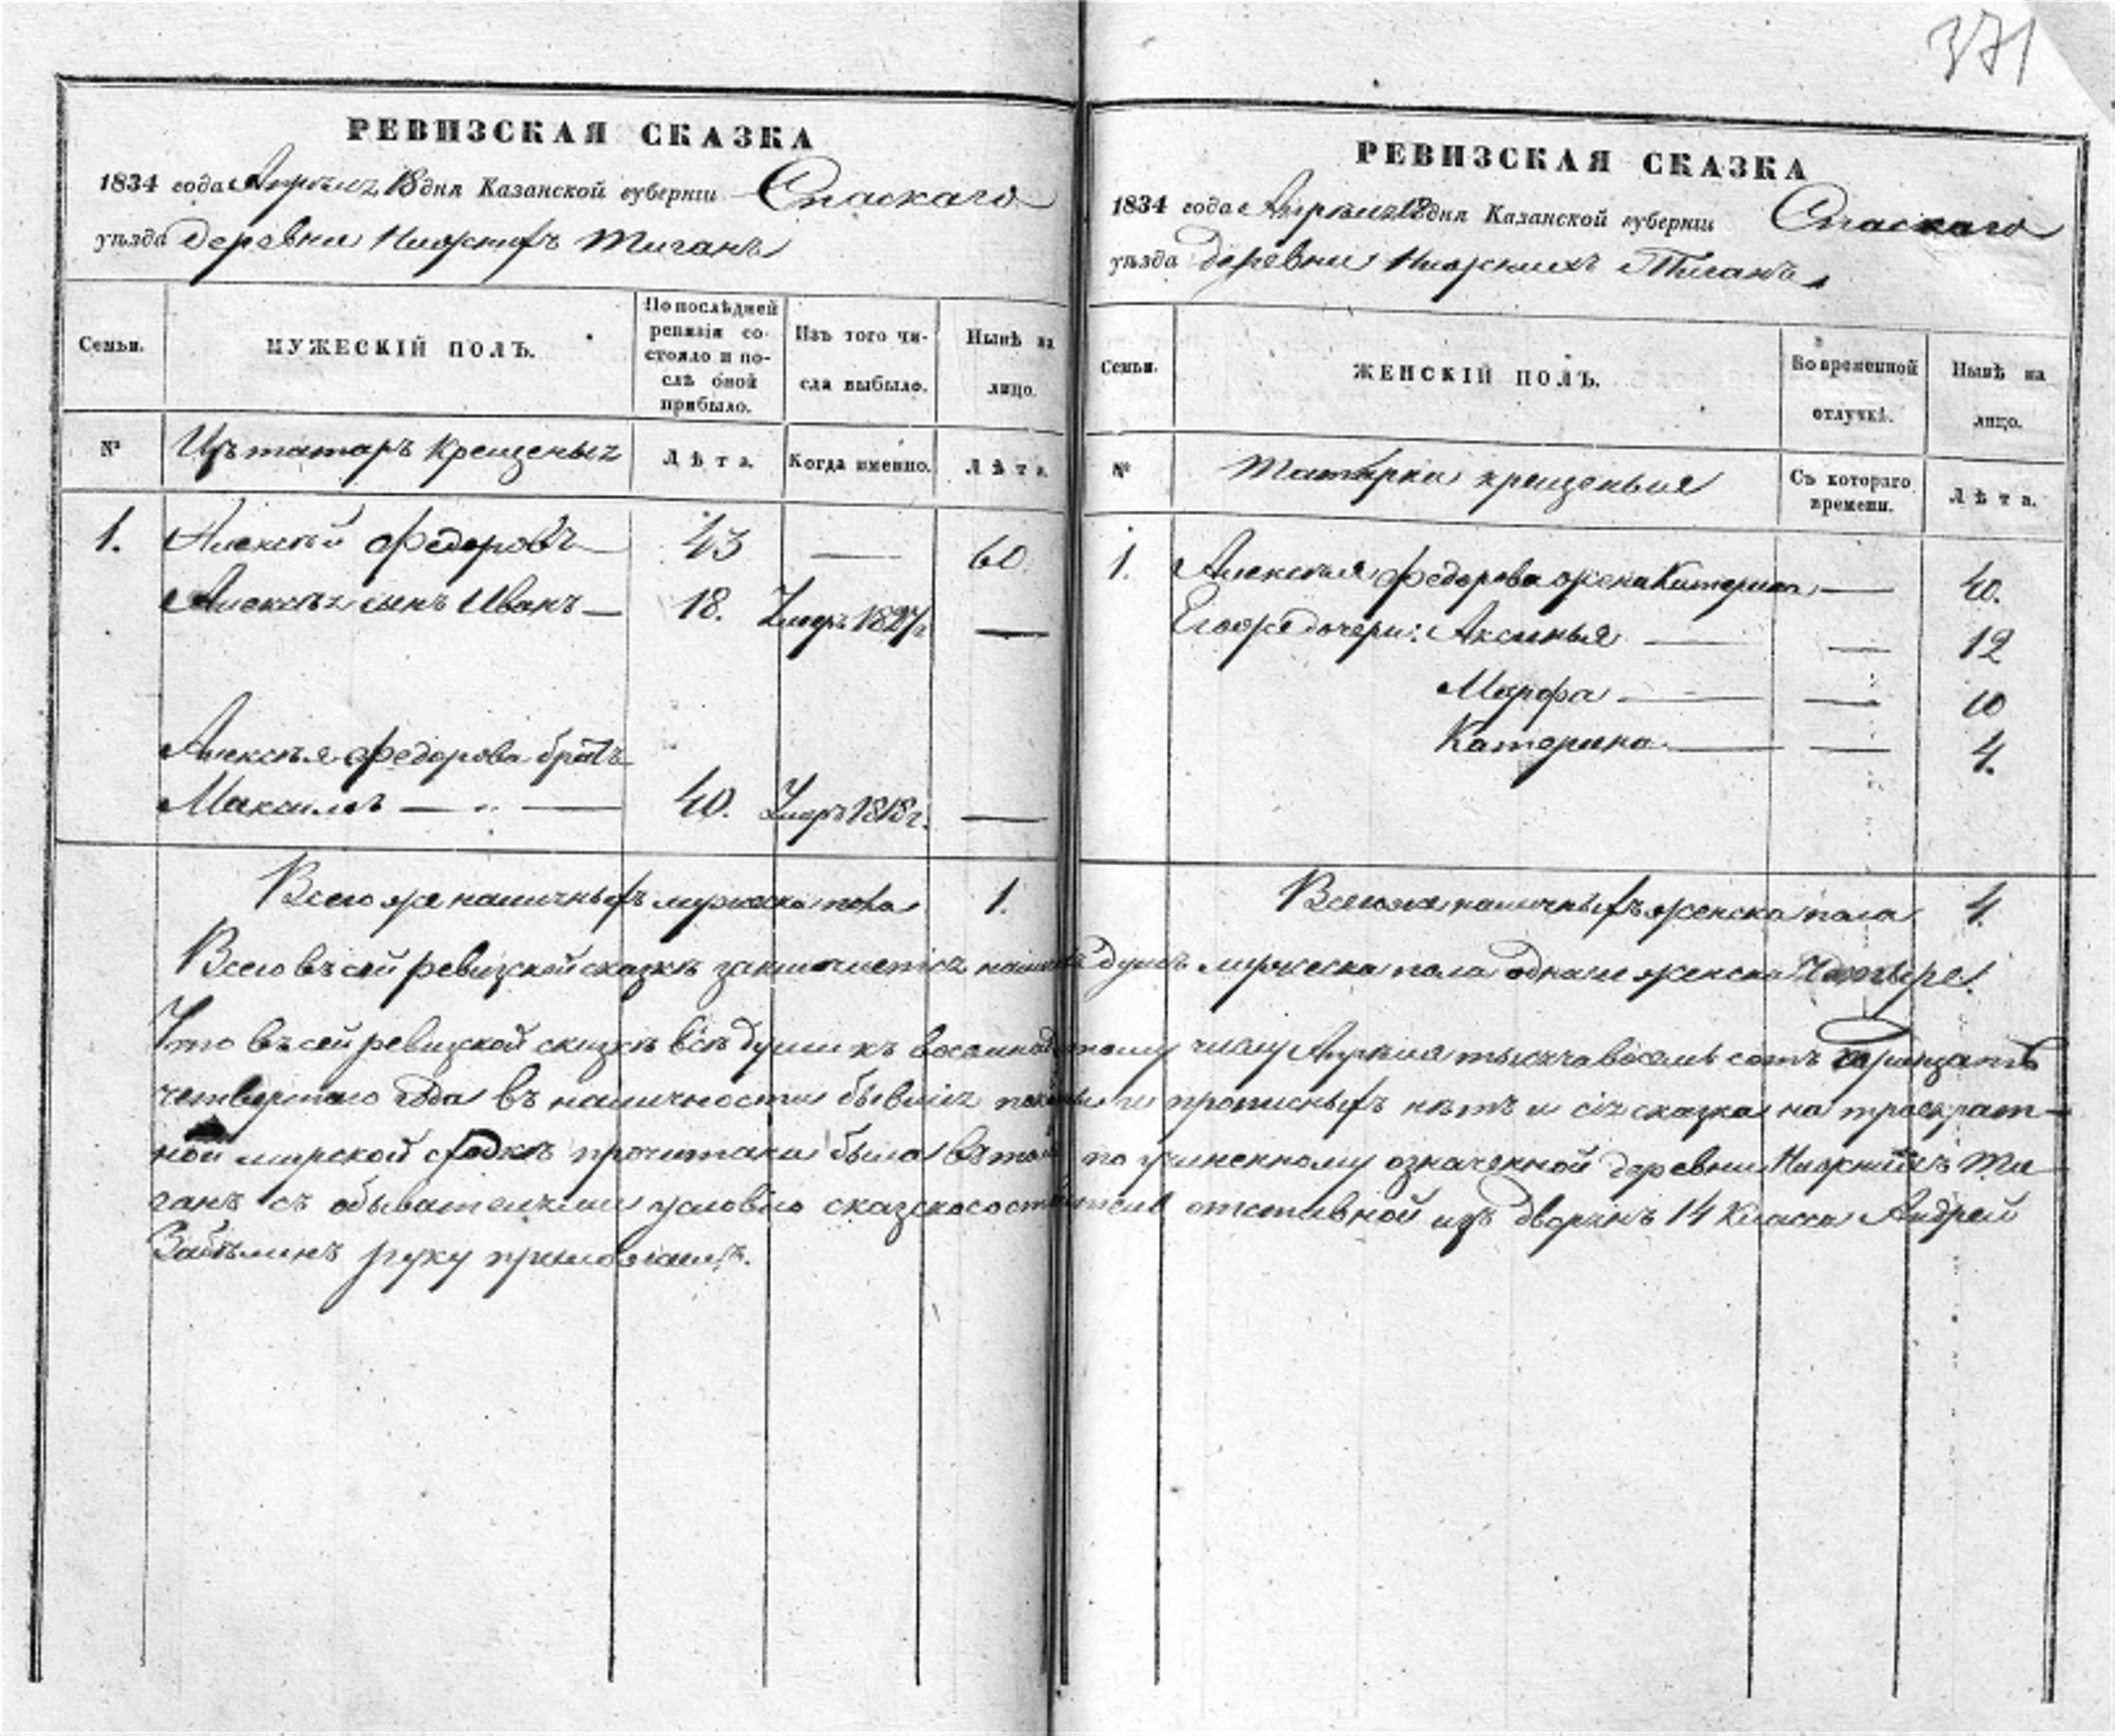 371
РЕВИЗСКАЯ СКАЗКА
1834 года Апрѣля 18 дня Казанской губерніи Спаскаго
уѣзда деревни Нижнихъ Тиганъ
Семьи.
МУЖЕСКІЙ ПОЛЪ.
По послѣдней ревизіи состояло и послѣ оной прибыло.
Изъ того числа выбыло.
Нынѣ на лицо.
№
Изъ татаръ крещеныхъ
Лѣта.
Когда именно.
Лѣта.
1. Алексѣй Федоровъ 43 — 60
Алексѣя сынъ Иванъ — 18. Умеръ 1827 г —
Алексѣя Федорова братъ
Максимъ — „ — 40. Умеръ 1818 г. —
Всего же наличныхъ мужеска пола 1.
РЕВИЗСКАЯ СКАЗКА
1834 года Апрѣля 18 дня Казанской губерніи Спаскаго
уѣзда деревни Нижнихъ Тиганъ
Семьи.
ЖЕНСКІЙ ПОЛЪ.
Во временной отлучкѣ.
Нынѣ на лицо.
№
Татарки крещеныя
Съ котораго времени.
Лѣта.
1. Алексѣя Федорова жена Катерина — 40.
Его же дочери: Аксинья — — 12
Марфа — — 10
Катерина — — 4.
Всего же наличныхъ женска пола 4.
Всего въ сей ревизской сказкѣ заключается душъ мужеска пола одна и женска четыре.
Что въ сей ревизской сказкѣ всѣ души къ восемнадцатому числу Апрѣля тысяча восемь сотъ тридцать
четвертаго года въ наличности бывшія и прописныхъ нѣтъ и сія сказка на троекрат-
ной мирской сходкѣ прочитана была въ томъ по учиненному означенной деревни Нижнихъ Ти-
ганъ съ обывателями условію сказкосоставитель отставной изъ дворянъ 14 класса Андрей
Забѣлинъ руку приложилъ.